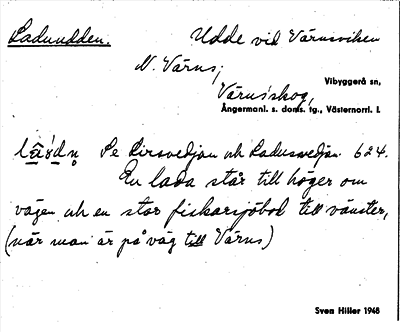 Ladudden. Udde vid Värnsviken
N. Värns,
Värnsskog,
Vibyggerå sn,
Ångermanl. s. doms. tg., Västernorrl. l.
Se Lirsvedjan och Ladusvedjan 624.
En lada står till höger om
vägen och en stor fiskarsjöbod till vänster,
(när man är på väg till Värns)
Svea Hiller 1948